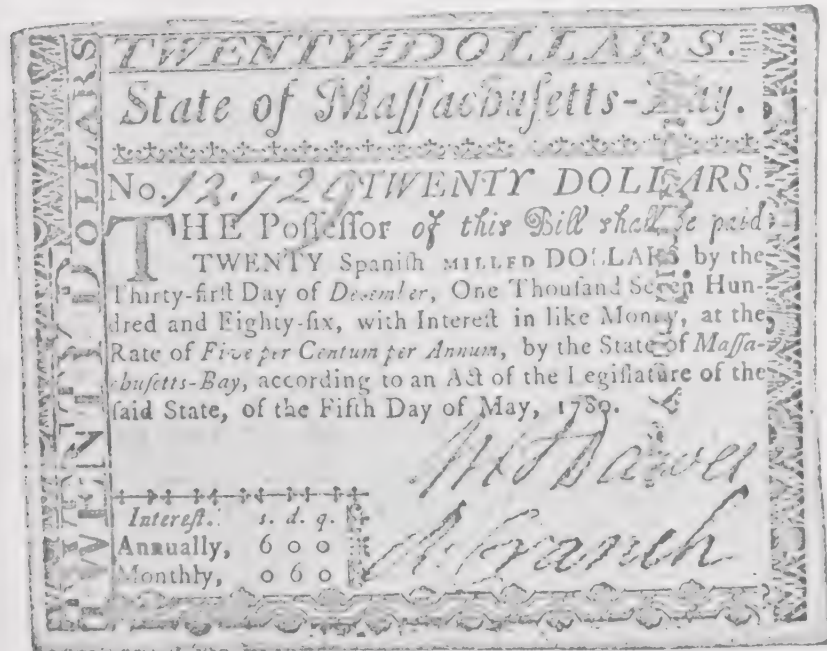 TWENTY DOLLARS.
State of Maſſachuſetts-Bay.
No. 12,729 TWENTY DOLLARS.
THE Poſſeſſor of this Bill ſhall be paid
TWENTY Spaniſh MILLED DOLLARS by the
Thirty-firſt Day of December, One Thouſand Seven Hun-
dred and Eighty-ſix, with Intereſt in like Money, at the
Rate of Five per Centum per Annum, by the State of Maſſa-
chuſetts-Bay, according to an Act of the Legiſlature of the
ſaid State, of the Fifth Day of May, 1780.
Dawes
R Cranch
Intereſt. s. d. q.
Annually, 6 0 0
Monthly, 0 6 0
TWENTY DOLLARS